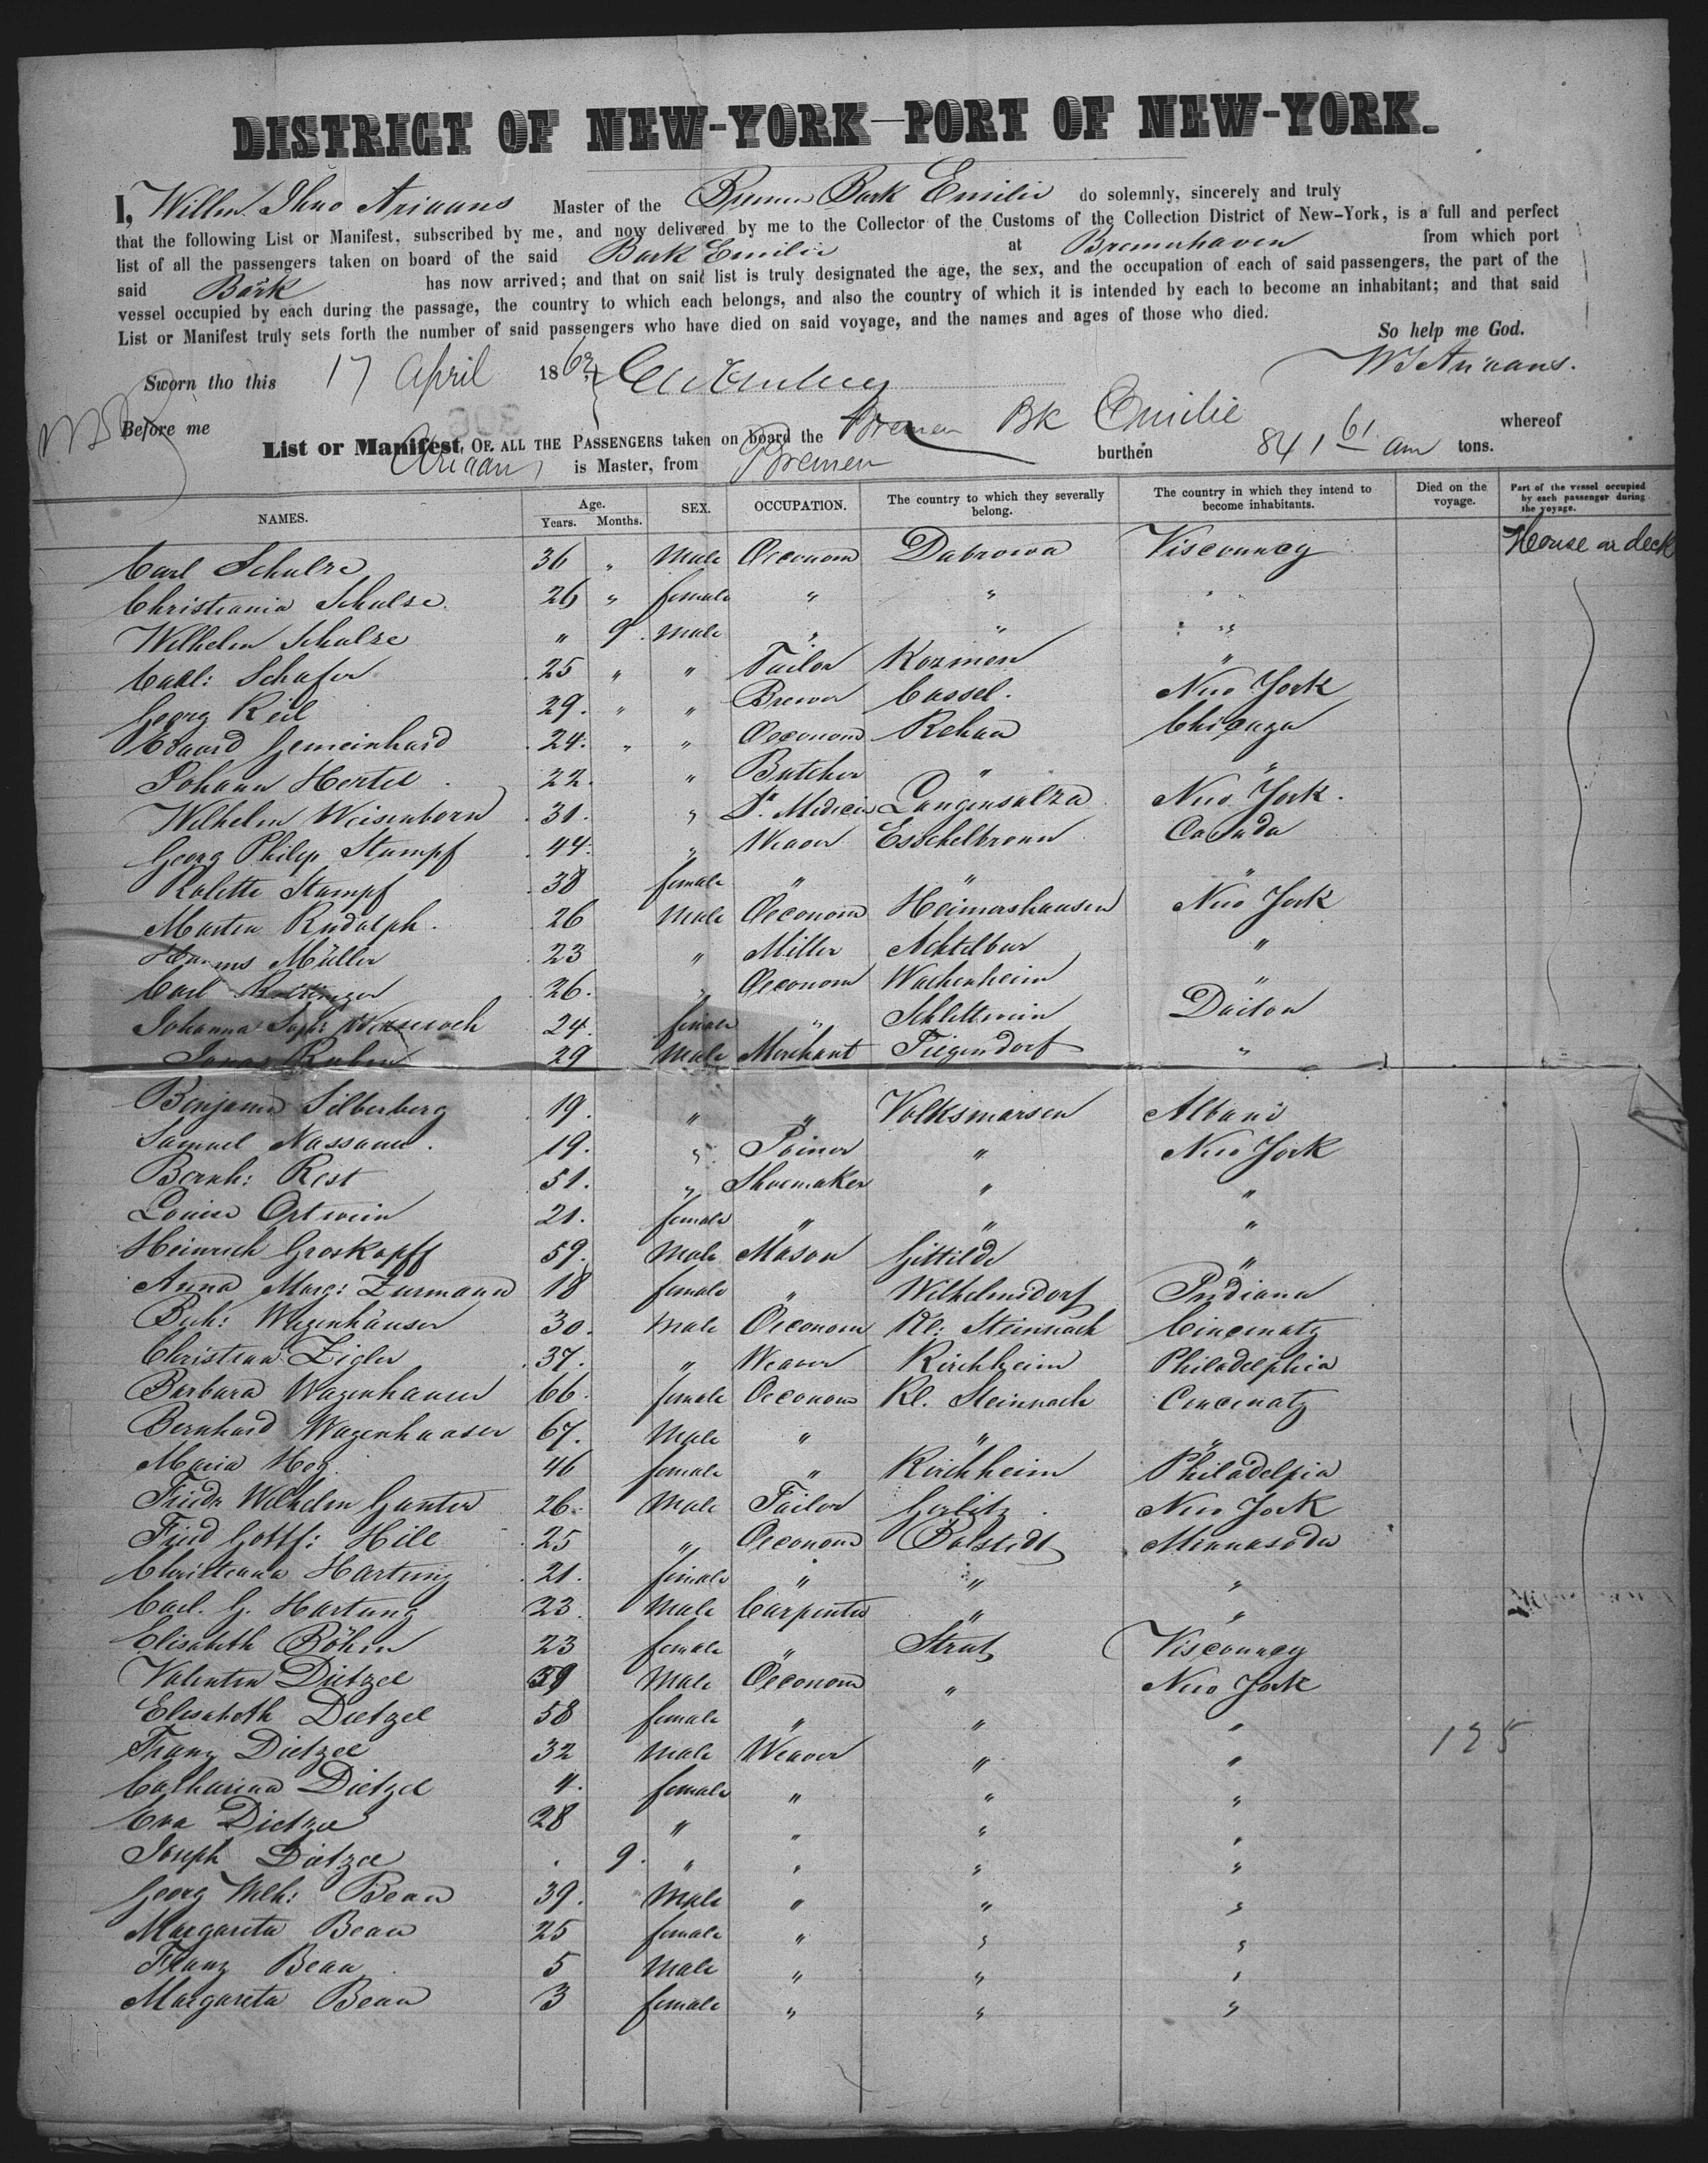 DISTRICT OF NEW-YORK—PORT OF NEW-YORK.
I, Willm. Ihno Ariaans Master of the Bremer Bark Emilie do solemnly, sincerely and truly
that the following List or Manifest, subscribed by me, and now delivered by me to the Collector of the Customs of the Collection District of New-York, is a full and perfect
list of all the passengers taken on board of the said Bark Emilie at Bremerhaven from which port
said Bark has now arrived; and that on said list is truly designated the age, the sex, and the occupation of each of said passengers, the part of the
vessel occupied by each during the passage, the country to which each belongs, and also the country of which it is intended by each to become an inhabitant; and that said
List or Manifest truly sets forth the number of said passengers who have died on said voyage, and the names and ages of those who died.
So help me God.
Sworn tho this 17 April 1863 W I Ariaans.
Before me
List or Manifest, OF ALL THE PASSENGERS taken on board the Bremen Bk Emilie whereof
Ariaans is Master, from Bremen burthen 841 61 tons.
NAMES. Age. Years. Months. SEX. OCCUPATION. The country to which they severally belong. The country in which they intend to become inhabitants. Died on the voyage. Part of the vessel occupied by each passenger during the voyage.
Carl Schulze 36 " Male Oeconom Dabrowa Visconncy House on deck
Christiania Schulze 26 " female " " "
Wilhelm Schulze " 9. Male " " "
Carl: Schafer 25 " " Tailor Kozmen "
Georg Keil 29. " " Brewer Cassel. New York
Eduard Gemeinhard 24. " " Oeconom Rehau Chicago
Johann Hertel 22. " Butcher " "
Wilhelm Weisenborn 31. " Dr. Medicin Langensalza New York.
Georg Philip Stumpf 44. " Weaver Esschelbronn Canada
Kolette Stumpf 38 female " " "
Martin Rudolph. 26 Male Oeconom Heimershausen New York
Harms Müller 23 " Miller Achtelbur "
Carl 26. " Oeconom Wachenheim "
Johanna Soph: 24. female " Schlettwein Daiton
Jonas Ruben 29 Male Merchant Tiegendorf "
Benjamin Silberberg 19. " " Volksmarsen Albani
Samuel Nassauer. 19. " Joiner " New York
Bernh: Rest 51. " Shoemaker " "
Louise Ortwein 21. female " " "
Heinrich Groskopff 59. Male Mason Gittilde "
Anna Marg: Zurmann 18 female " Wilhelmsdorf Indiana
Bch: Wagenhäuser 30. Male Oeconom Kl: Steinnach Cincenaty
Christian Zigler 37. " Weaver Kirchheim Philadelphia
Barbara Wagenhauser 66. female Oeconom Kl. Steinnach Cencenaty
Bernhard Wagenhaaser 67. Male " " "
Maria Hog. 46 female " Kirchheim Philadelpia
Friedr Wilhelm Gunter 26. Male Tailor Gorlitz. New York
Fried Gottf: Hill 25 " Oeconom Balstedt Minnasoda
Christiana Hartung 21. female " " "
Carl. G. Hartung 23. Male Carpenter " "
Elisabeth Böhm 23 female " Strut Visconncy
Valentin Dietzel 59 Male Oeconom " New York
Elisabeth Dietzel 58 female " " "
Franz Dietzel 32 Male Weaver " "
Catharina Dietzel 4. female " " "
Eva Dietzel 28 " " " "
Joseph Dietzel . 9. " " " "
Georg Wilh: Beau 39. Male " " "
Margareta Beau 25 female " " "
Franz Beau 5 Male " " "
Margareta Beau 3 female " " "